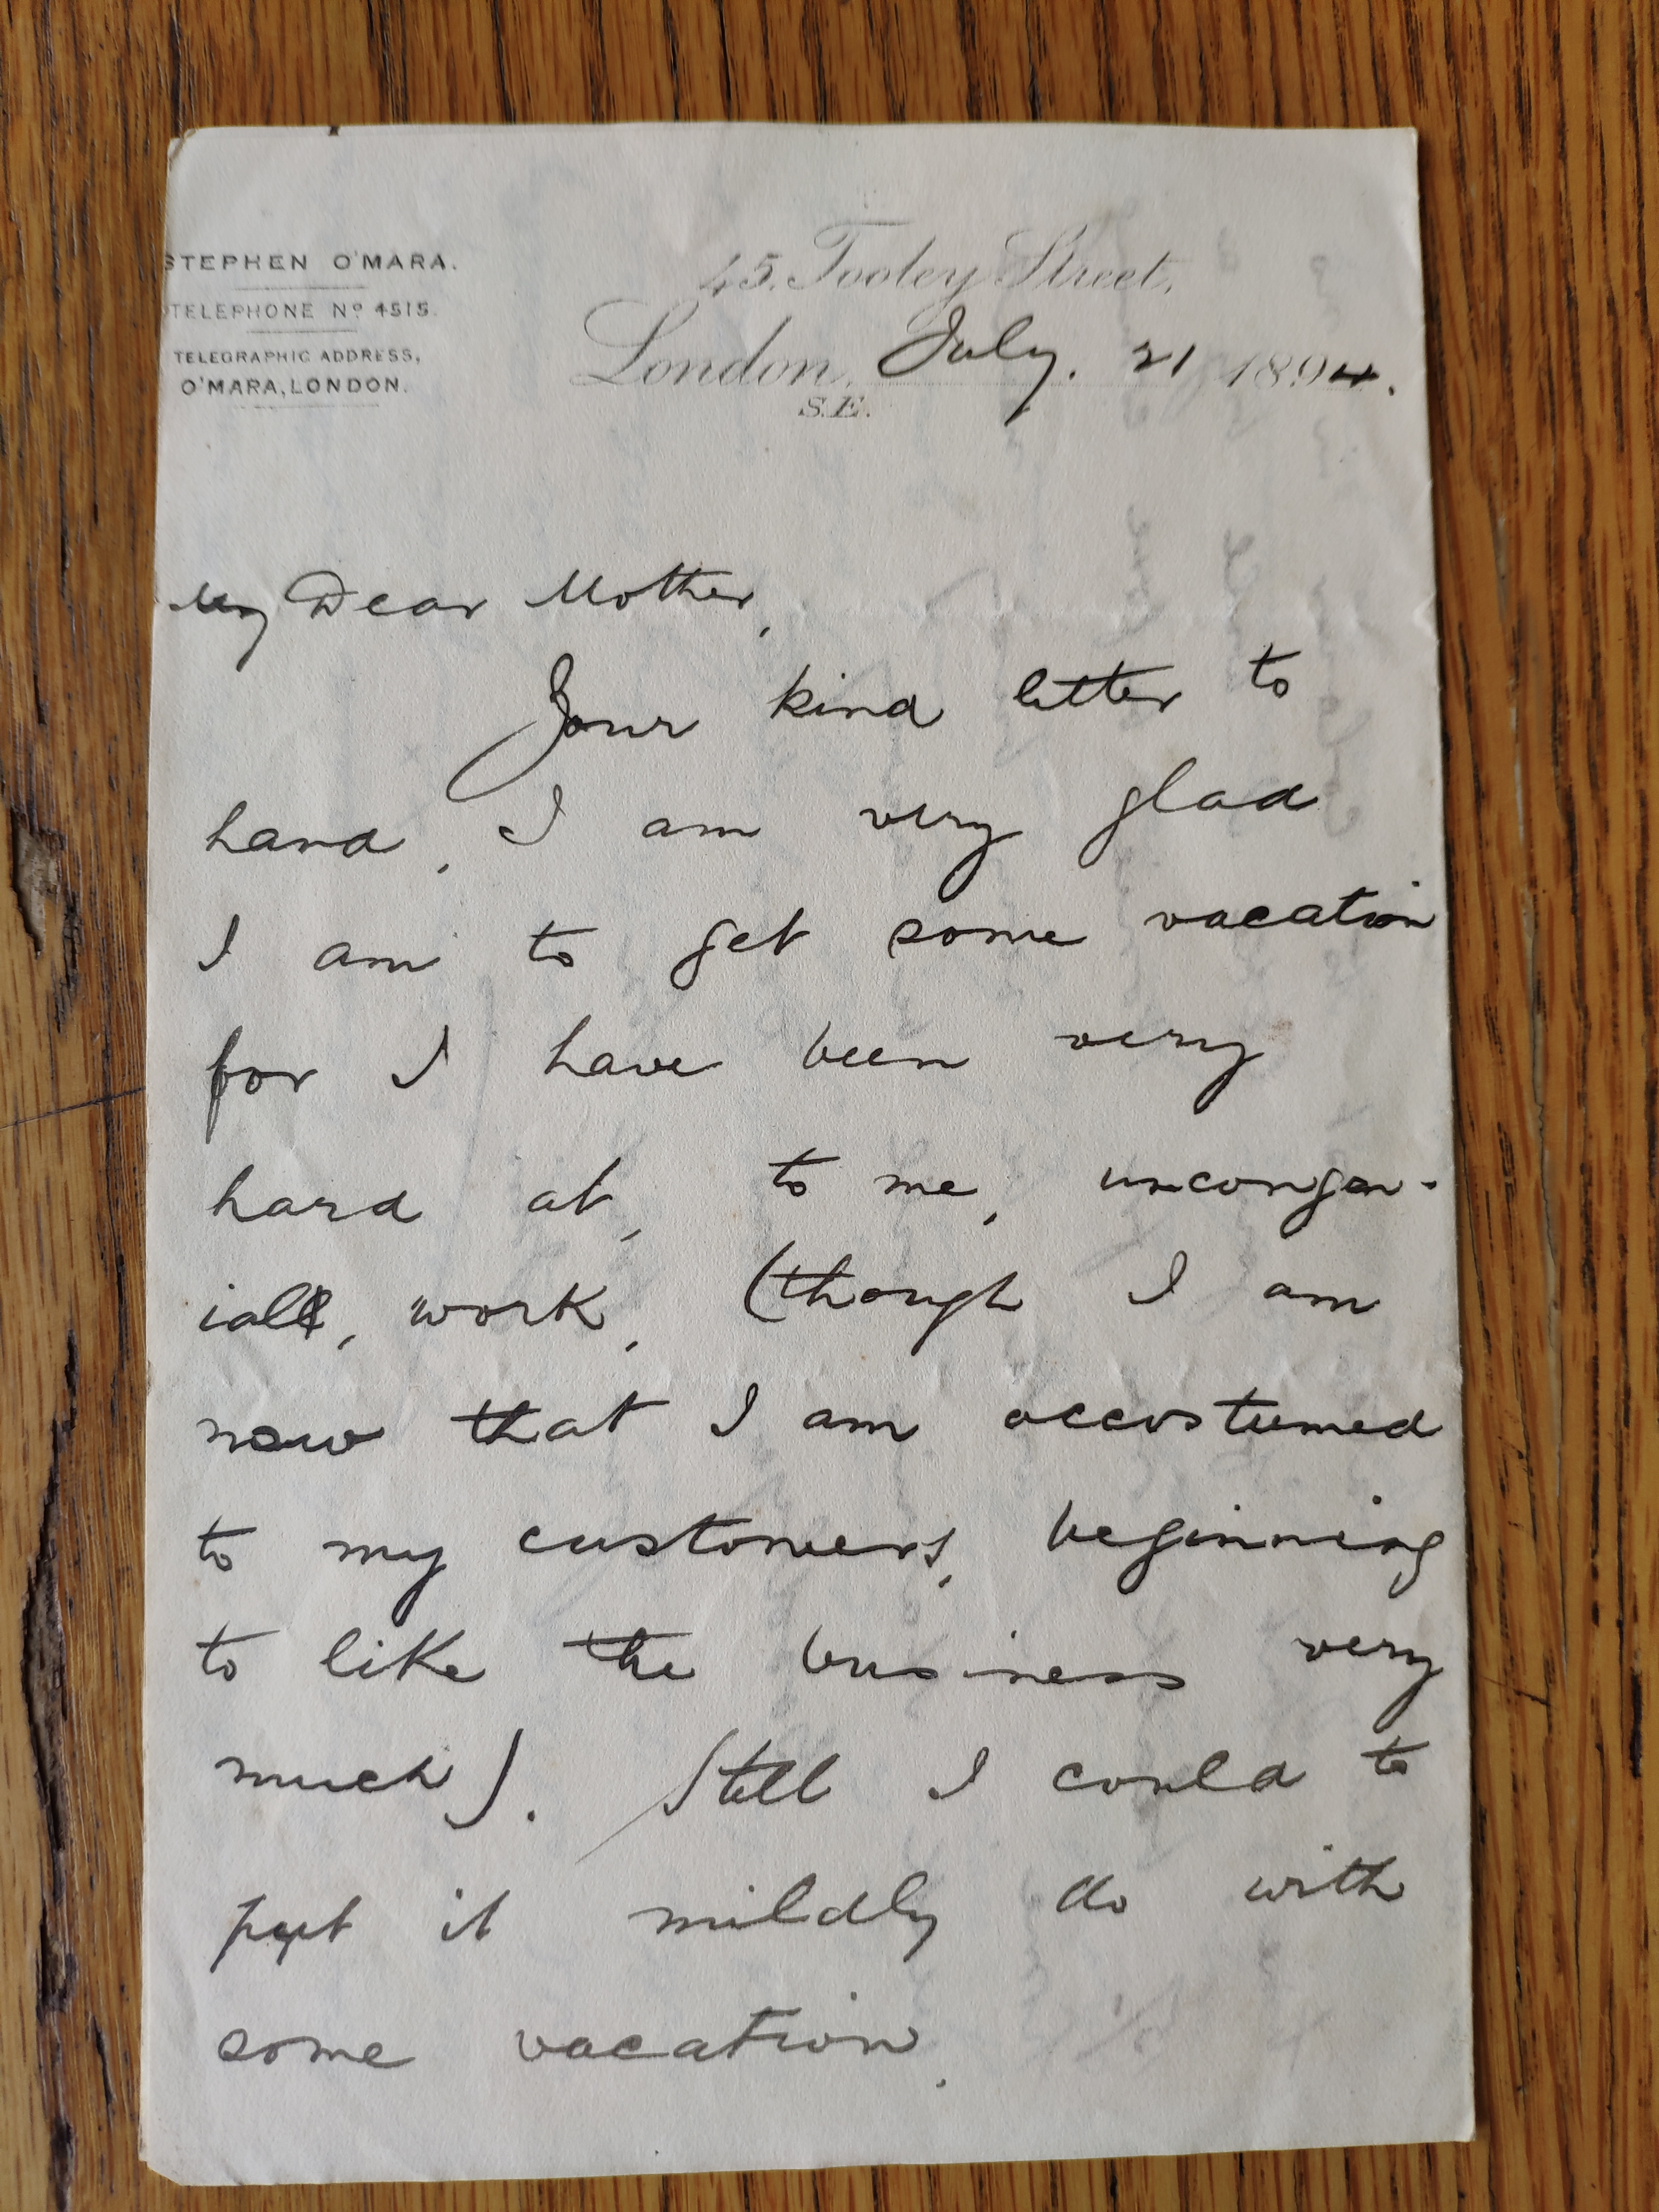 STEPHEN O'MARA.
TELEPHONE Nº 4515.
TELEGRAPHIC ADDRESS,
O'MARA, LONDON.
45. Tooley Street,
London, July. 21 1894.
S.E.
My Dear Mother,
Your kind letter to
hand, I am very glad
I am to get some vacation
for I have been very
hard at, to me, uncongen-
iall, work, (though I am
now that I am accustumed
to my customers, beginning
to like the business very
much). Still I could to
put it mildly do with
some vacation.